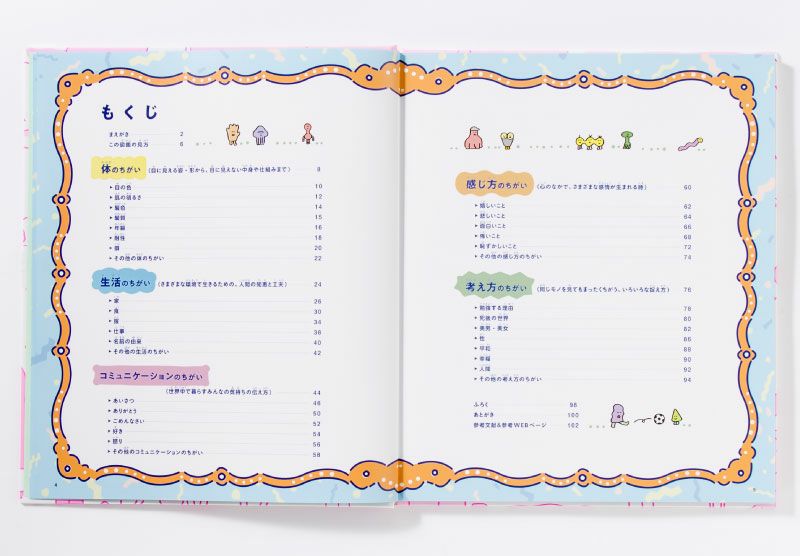 もくじ
まえがき 2
この図鑑の見方 6
体のちがい (目に見える姿・形から、目に見えない中身や仕組みまで) 8
▸目の色 10
▸肌の明るさ 12
▸髪色 14
▸髪質 15
▸年齢 16
▸耐性 18
▸顔 20
▸その他の体のちがい 22
生活のちがい (さまざまな環境で生きるための、人間の知恵と工夫) 24
▸家 26
▸食 30
▸服 34
▸仕事 36
▸名前の由来 40
▸その他の生活のちがい 42
コミュニケーションのちがい
(世界中で暮らすみんなの気持ちの伝え方) 44
▸あいさつ 46
▸ありがとう 50
▸ごめんなさい 52
▸好き 54
▸怒り 56
▸その他のコミュニケーションのちがい 58
4
感じ方のちがい (心のなかで、さまざまな感情が生まれる時) 60
▸嬉しいこと 62
▸悲しいこと 64
▸面白いこと 66
▸怖いこと 68
▸恥ずかしいこと 72
▸その他の感じ方のちがい 74
考え方のちがい (同じモノを見てもまったくちがう、いろいろな捉え方) 76
▸勉強する理由 78
▸死後の世界 80
▸美男・美女 82
▸性 86
▸平和 88
▸幸福 90
▸人間 92
▸その他の考え方のちがい 94
ふろく 98
あとがき 100
参考文献&参考WEBページ 102